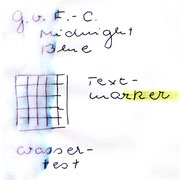 G. v. F.-C.
Midnight
Blue
Text-
marker
Wasser-
test